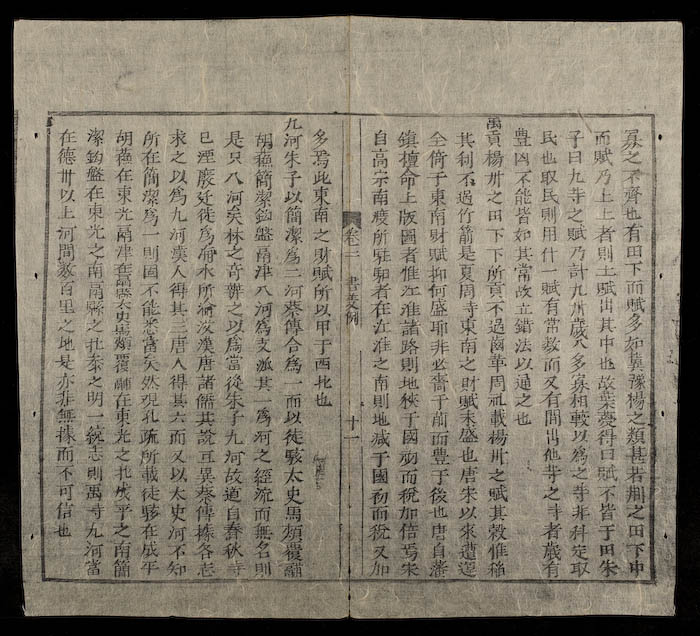 寡之不齊也有田下而賦多如冀豫楊之類甚者荆之田下中
而賦乃上上者則土賦出其中也故葉夢得曰賦不皆于田朱
子曰九等之賦乃計九州歲入多寡相較以為之等非科定取
民也取民則用什一賦有常數而又有間出他等之時者歲有
豊凶不能皆如其常故立錯法以通之也
禹貢楊州之田下下所貢不過齒革周礼載楊州之賦其穀惟稲
其利不過竹箭是夏周等東南之財賦未盛也唐宋以來遭運
全倚于東南財賦抑何盛耶非必嗇于前而豊于後也唐自藩
鎮擅命上版圖者惟江淮諸路則地狹于國初而稅加倍焉宋
自高宗南渡所駐蹕者在江淮之南則地减于國初而稅又加
卷三 書叢例 十一
多焉此東南之財賦所以甲于西北也
九河朱子以簡潔為二河蔡傳合為一而以徒駭太史馬頰覆鬴
胡蘇簡潔鈎盤鬲津八河為支派其一為河之經流而無名則
是只八河矣林之奇辨之以為當從朱子九河故道自春秋等
已湮廢迁徙為海水所淪沒漢唐諸儒其說互異蔡傳據各志
求之以為九河漢人得其三唐人得其六而又以太史河不知
所在簡潔為一則固不能悉當矣然觀孔疏所載徒駭在成平
胡蘇在東光鬲津在鬲縣太史馬頰覆鬴在東光之北成平之南簡
潔鈎盤在東光之南鬲縣之北泰之明一統志則禹等九河當
在德州以上河間數百里之地是亦非無據而不可信也